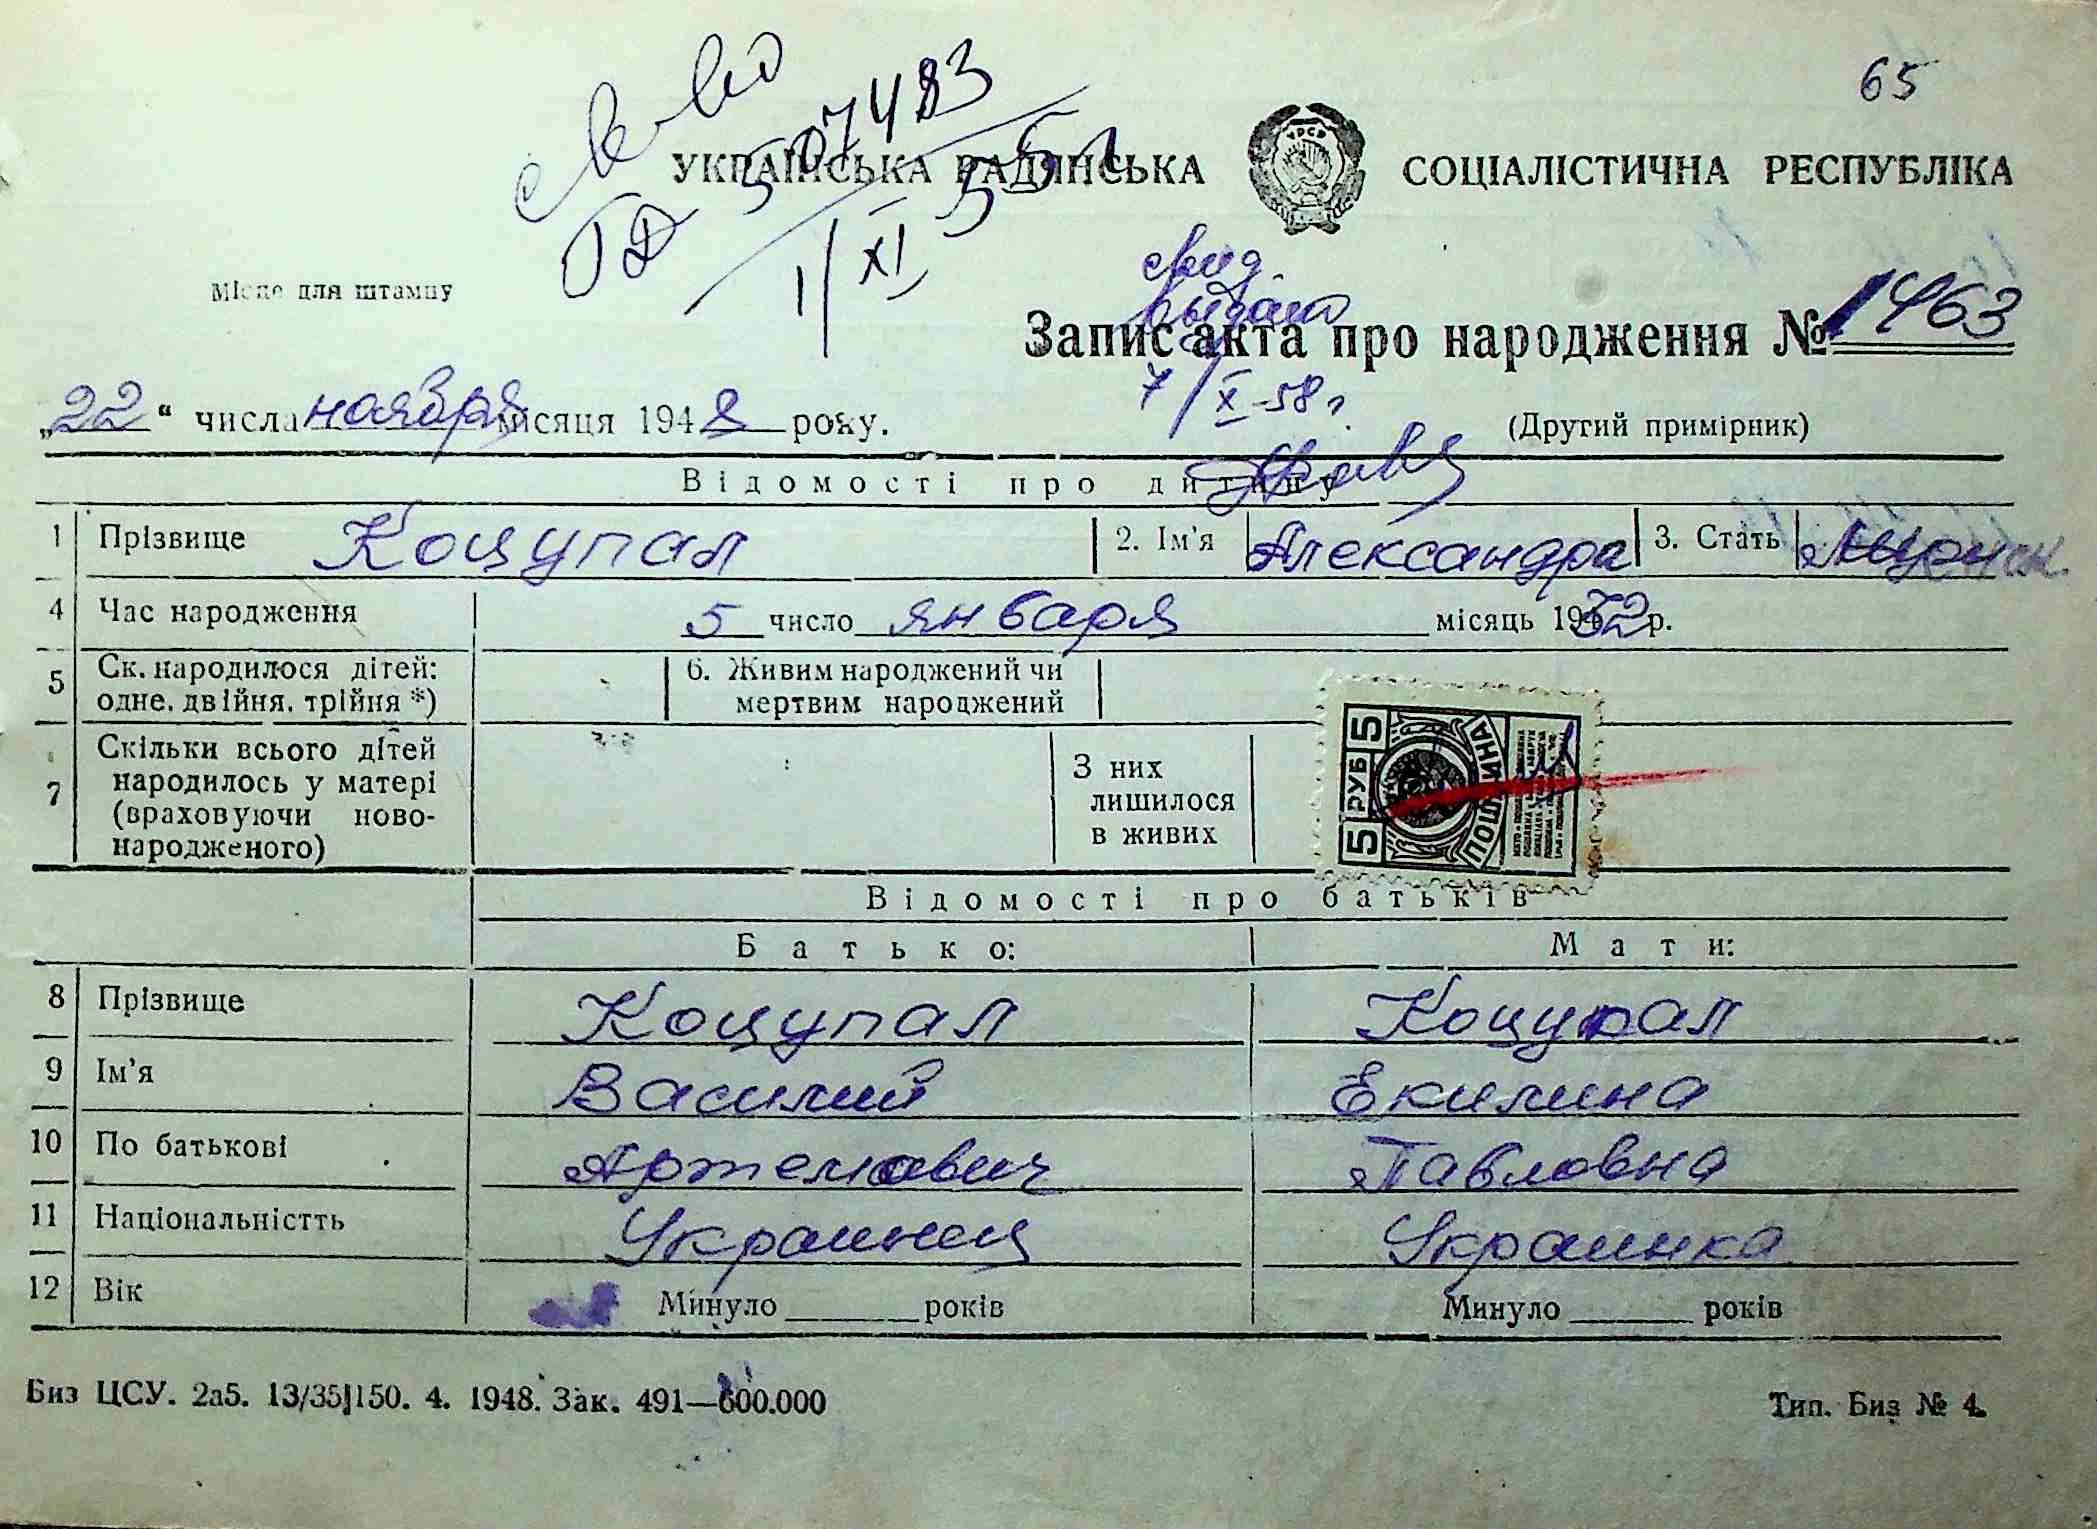 65
507483
УКРАЇНСЬКА РАДЯНСЬКА СОЦІАЛІСТИЧНА РЕСПУБЛІКА
УРСР
1/XI 55 г
Місце для штампу
свид.
выдано
Запис акта про народження № 1463
7/X-58 г.
„22“ числа ноября місяця 1948 року.
(Другий примірник)
Відомості про дитину
1 Прізвище Коцупал 2. Ім'я Александра 3. Стать
4 Час народження 5 число января місяць 1932 р.
5 Ск. народилося дітей: одне, двійня, трійня *) 6. Живим народжений чи мертвим народжений
7 Скільки всього дітей народилось у матері (враховуючи ново-народженого) З них лишилося в живих
5 РУБ 5
ПОШЛИНА
Відомості про батьків
Батько: Мати:
8 Прізвище Коцупал Коцупал
9 Ім'я Василий Екилина
10 По батькові Артемович Павловна
11 Національністть Украинец Украинка
12 Вік Минуло ______ років Минуло ______ років
Биз ЦСУ. 2а5. 13/35]150. 4. 1948. Зак. 491—600.000 Тип. Биз № 4.